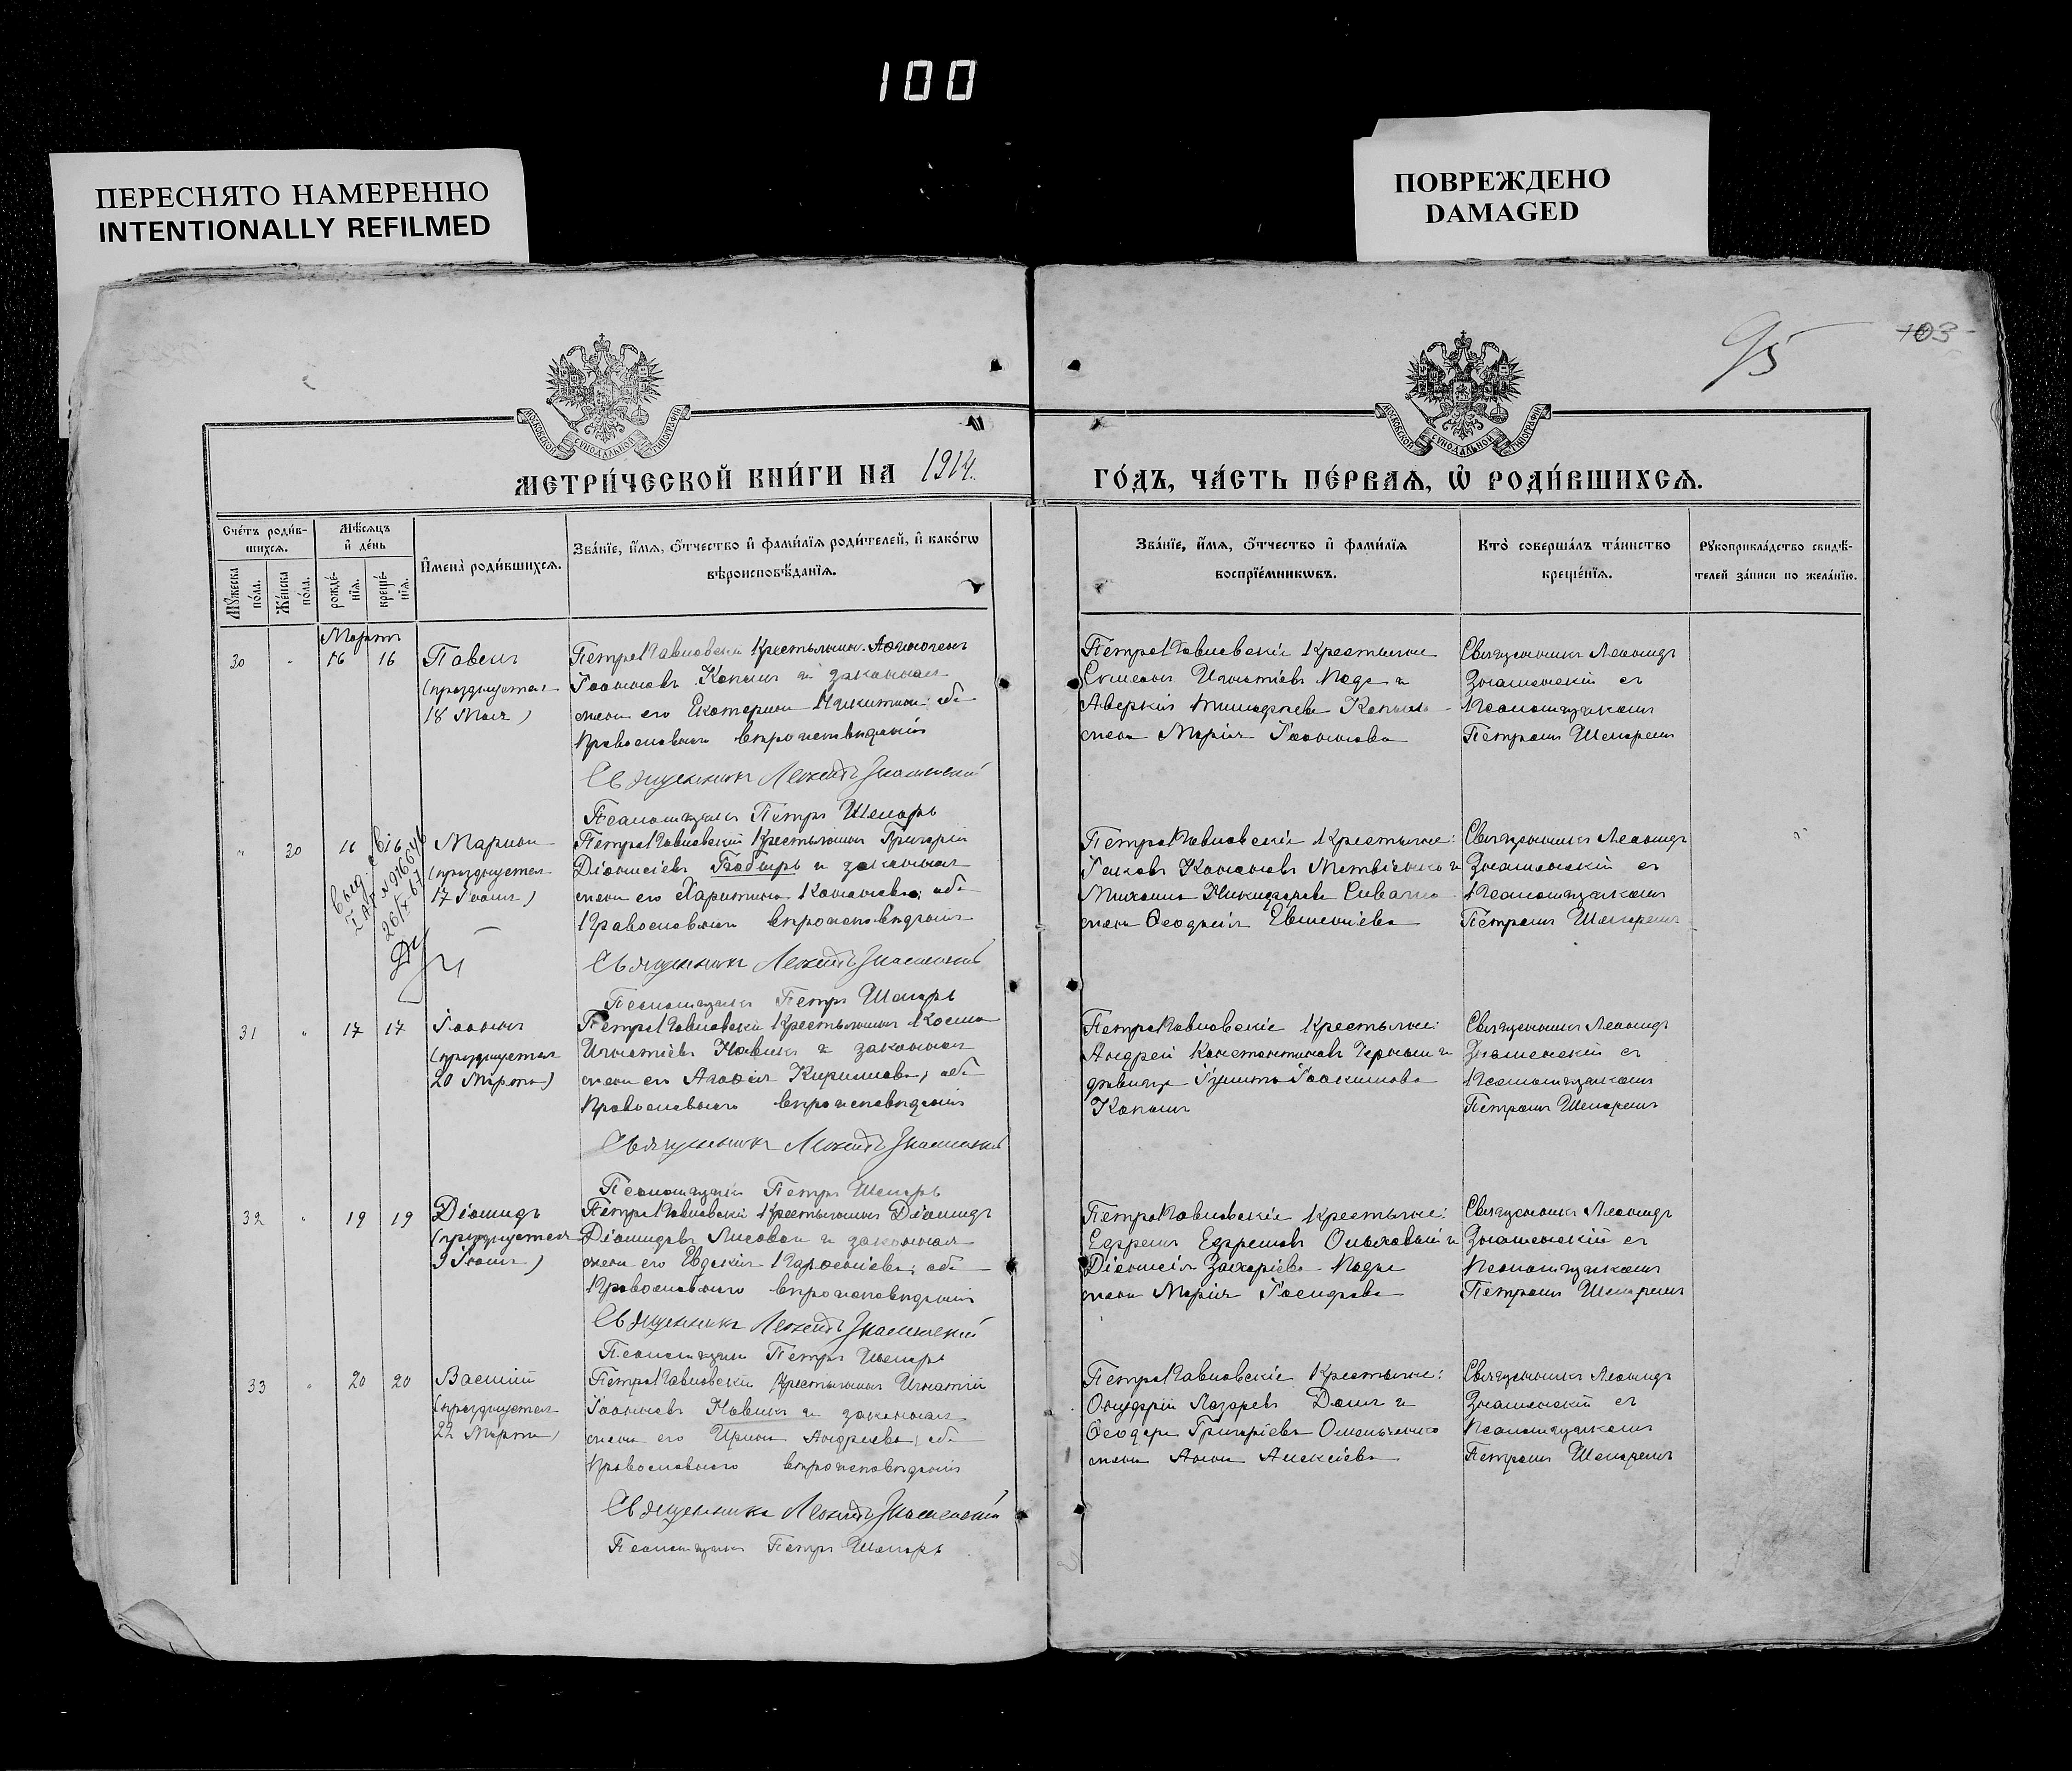 100
ПЕРЕСНЯТО НАМЕРЕННО
INTENTIONALLY REFILMED
ПОВРЕЖДЕНО
DAMAGED
95
103
МОСКОВСКОЙ СУНОДАЛЬНОЙ ТИПОГРАФІИ
МОСКОВСКОЙ СУНОДАЛЬНОЙ ТИПОГРАФІИ
МЕТРИ́ЧЕСКОЙ КНИ́ГИ НА 1914.
ГО́ДЪ, ЧА́СТЬ ПЕ́РВАѦ, Ѡ҆ РОДИ́ВШИХСѦ.
Сче́тъ роди́в-
шихсѧ.
Мꙋжеска по́ла.
Же́нска по́ла.
Мѣ́сѧцъ
и҆ де́нь
рожде́-
нїѧ.
креще́-
нїѧ.
И҆мена̀ роди́вшихсѧ.
Зва́нїе, и҆́мѧ, ѻ҆́тчество и҆ фами́лїѧ роди́телей, и҆ како́гѡ
вѣроисповѣ́данїѧ.
Зва́нїе, и҆́мѧ, ѻ҆́тчество и҆ фами́лїѧ
воспрїе́мникѡвъ.
Кто̀ соверша́лъ та́инство
креще́нїѧ.
Рꙋкоприкла́дство свидѣ́-
телей за́писи по жела́нїю.
Мартъ
30 " 16 16 Павелъ
(празднуется
18 Мая)
ПетроПавловскій Крестьянинъ
Іоанновъ Копылъ и законная
жена его Екатерина Никитина оба
Православнаго вѣроисповѣданія
Священникъ Леонидъ Знаменскій
Псаломщикъ Петръ Шепарь
ПетроПавловскіе Крестьяне
Симеонъ Игнатіевъ и
Аверкія Тимофеева Копыла
жена Марія Іоаннова
Священникъ Леонидъ
Знаменскій съ
Псаломщикомъ
Петромъ Шепаремъ
" 30 16 16 Марина
(празднуется
17 Іюля)
26/X-67
ПетроПавловскій Крестьянинъ Григорій
Діонисіевъ Бобырь и законная
жена его Харитина Кононова; оба
Православнаго вѣроисповѣданія
Священникъ Леонидъ Знаменскій
Псаломщикъ Петръ Шепарь
ПетроПавловскіе Крестьяне:
Іаковъ Кононовъ Матвіенко и
Михаила Никифорова
жена Ѳеодосія Евменіева
Священникъ Леонидъ
Знаменскій съ
Псаломщикомъ
Петромъ Шепаремъ
31 " 17 17 Іоаннъ
(празднуется
20 Марта)
ПетроПавловскій Крестьянинъ Косма
Игнатіевъ Новикъ и законная
жена его Агафія Кириллова; оба
Православнаго вѣроисповѣданія
Священникъ Леонидъ Знаменскій
Псаломщикъ Петръ Шепарь
ПетроПавловскіе Крестьяне:
Андрей Константиновъ Черныш и
дѣвица Іоакимова
Копылъ
Священникъ Леонидъ
Знаменскій съ
Псаломщикомъ
Петромъ Шепаремъ
32 " 19 19 Діомидъ
(празднуется
3 Іюля)
ПетроПавловскій Крестьянинъ Діомидъ
Діомидовъ Лисовой и законная
жена его Евдокія Парѳеніева; оба
Православнаго вѣроисповѣданія
Священникъ Леонидъ Знаменскій
Псаломщикъ Петръ Шепарь
ПетроПавловскіе Крестьяне:
Ефремъ Ефремовъ Ольховый и
Діонисія Захаріева
жена Марія Іосифова
Священникъ Леонидъ
Знаменскій съ
Псаломщикомъ
Петромъ Шепаремъ
33 " 20 20 Василій
(празднуется
22 Марта)
ПетроПавловскій Крестьянинъ Игнатій
Іоанновъ Новикъ и законная
жена его Ирина Андреева; оба
Православнаго вѣроисповѣданія
Священникъ Леонидъ Знаменскій
Псаломщикъ Петръ Шепарь
ПетроПавловскіе Крестьяне:
Онуфрій Лазаревъ и
Ѳеодора Григоріева Омельченко
жена Анна Алексіева
Священникъ Леонидъ
Знаменскій съ
Псаломщикомъ
Петромъ Шепаремъ